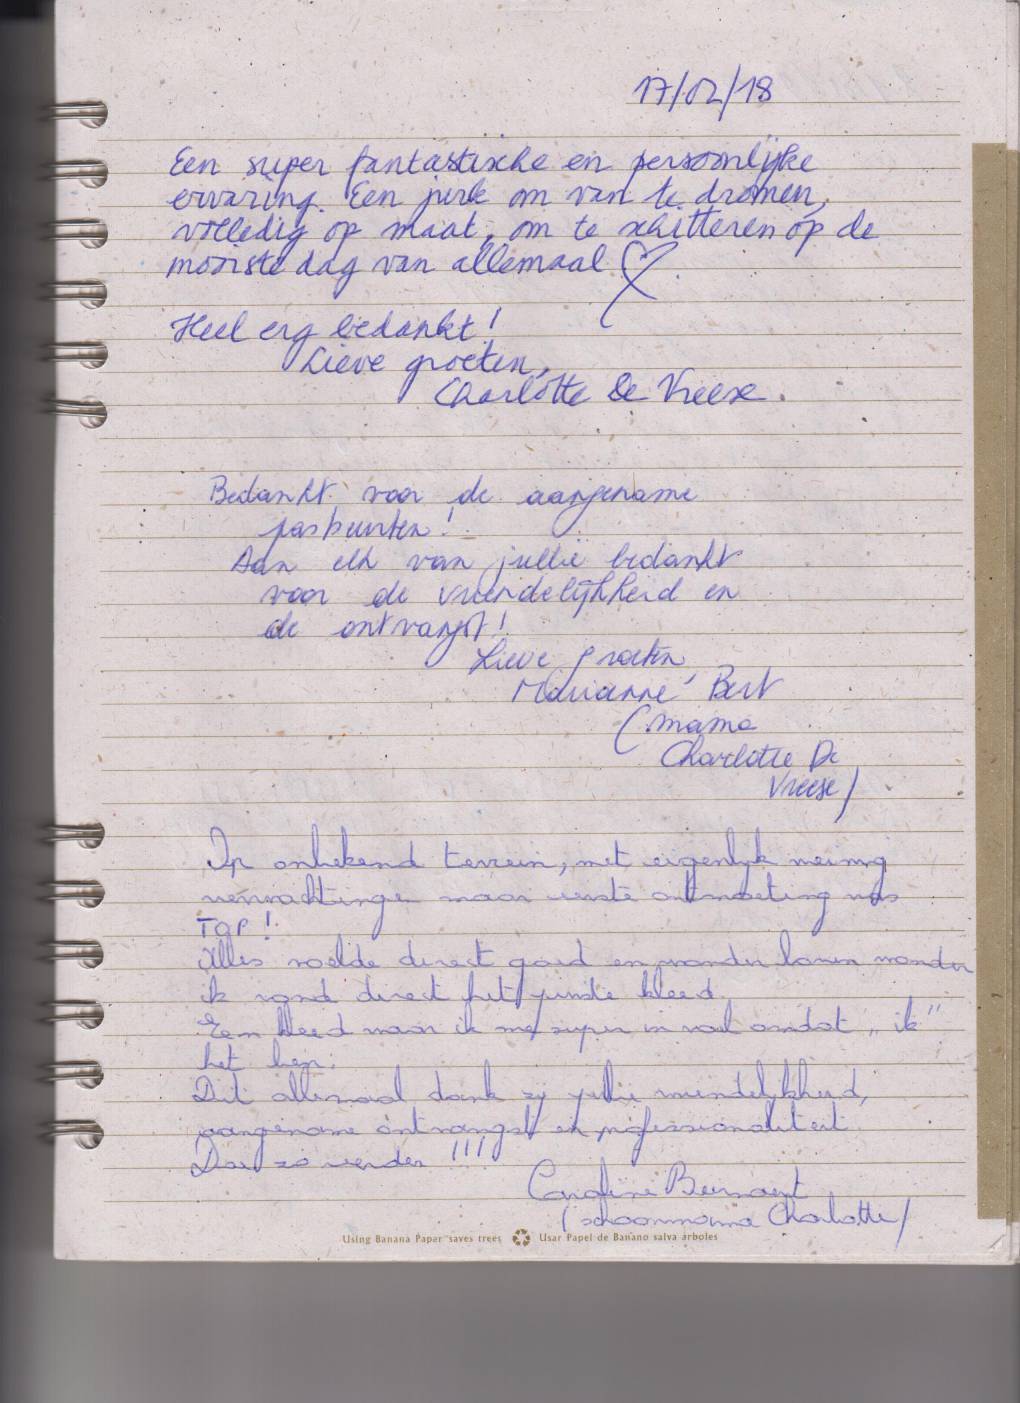 17/02/18
Een super fantastische en persoonlijke
ervaring. Een jurk om van te dromen,
volledig op maat, om te schitteren op de
mooiste dag van allemaal
Heel erg bedankt!
Lieve groeten,
Charlotte De Vreese.
Bedankt voor de aangename
pasbeurten!
Aan elk van jullie bedankt
voor de vriendelijkheid en
de ontvangst!
Lieve groeten,
Marianne Bert
(mama
Charlotte De
Vreese)
Op onbekend terrein, met eigenlijk weinig
verwachtingen maar eerste ontmoeting was
TOP!
Alles voelde direct goed en wonder boven wonder
ik vond direct het juiste kleed.
Een kleed waar ik me super in voel omdat "ik"
het ben.
Dit allemaal dank zij jullie vriendelijkheid,
aangename ontvangst en professionaliteit.
Doe zo verder !!!!
Caroline
(schoonmama Charlotte)
Using Banana Paper saves trees Usar Papel de Banano salva árboles